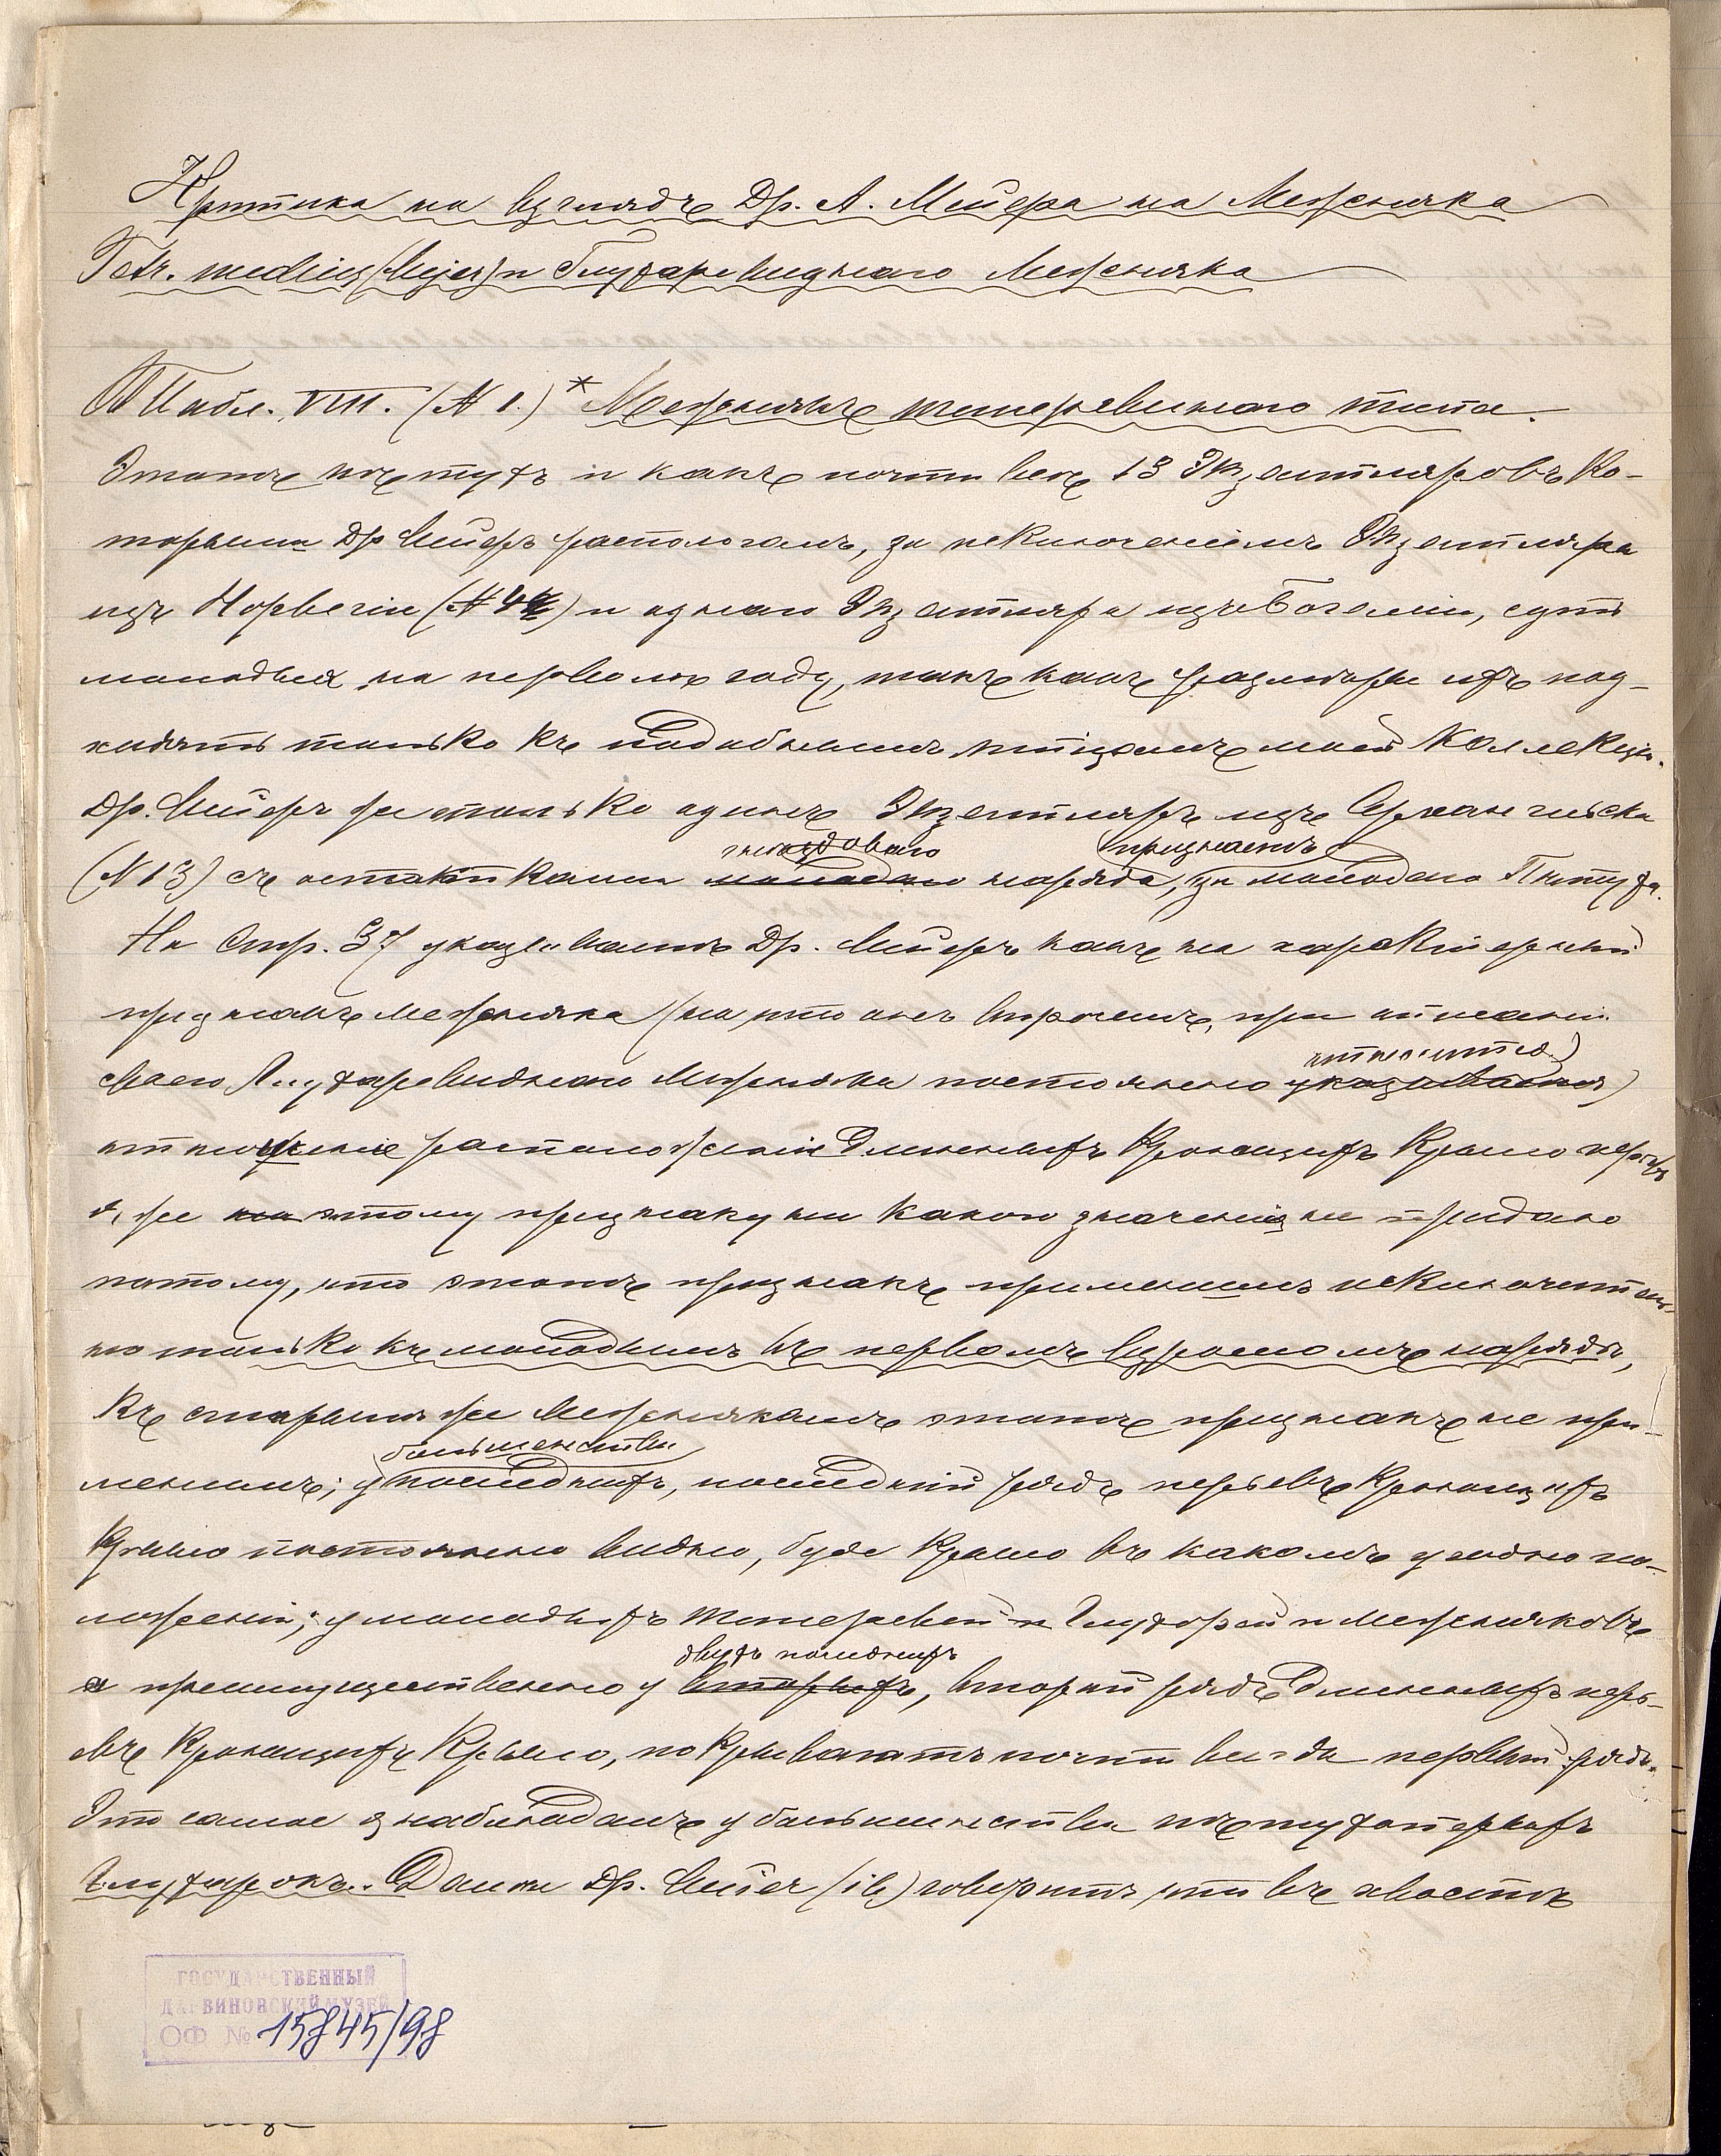 Критика на взглядъ Др. А. Мейера на Межняка
Tetr. medius (Mejer) и Глухаревиднаго Межняка
Табл. VIII. (№ 1.) * Межнякъ тетеревинаго типа.
Этотъ пѣтухъ и какъ почти всѣ 13 Экземпляровъ ко-
торыми Др Мейеръ распологалъ, за исключеніемъ Экземпляра
изъ Норвегіи (№ 4) и однаго Экземпляра изъ Богеміи, суть
молодыя на первомъ году, такъ какъ размѣры ихъ под-
ходятъ только къ подобнымъ птицамъ моей Коллекціи.
Др. Мейеръ же только одинъ Экземпляръ изъ Архангельска
(№ 13) съ остатками гнездоваго наряда, признаетъ за молодаго Пѣтуха.
На Стр. 37 указываетъ Др. Мейеръ какъ на характерный
признакъ межняка (на что онъ впрочемъ, при описаніи
своего Глухаревиднаго Межняка постоянно относится)
относженіе расположеніе длинныхъ Кроющихъ Крыло перьевъ
я, же этому признаку ни какого значенія не придаю
потому, что этотъ признакъ примѣнимъ исключитель-
но только къ молодымъ въ первомъ взросломъ нарядѣ,
къ старымъ же Межнякамъ этотъ признакъ не при-
менимъ; у большенства последнихъ, последній рядъ перьевъ Кроющихъ
Крыло постоянно видно, будь Крыло въ какомъ угодно по-
ложеніи; у молодыхъ тетеревей Глухарей и Межняковъ
а преимущественно у двухъ последнихъ, вторый рядъ длинныхъ перь-
евъ Кроющихъ Крыло, покрываетъ почти всегда первый рядъ.
Это самое я наблюдалъ у большинства пѣтухоперыхъ
Глухарокъ. Далѣе Др. Мейer (ib) говоритъ, что въ хвостѣ
ГОСУДАРСТВЕННЫЙ
ДАРВИНОВСКИЙ МУЗЕЙ
ОФ № 15845/98